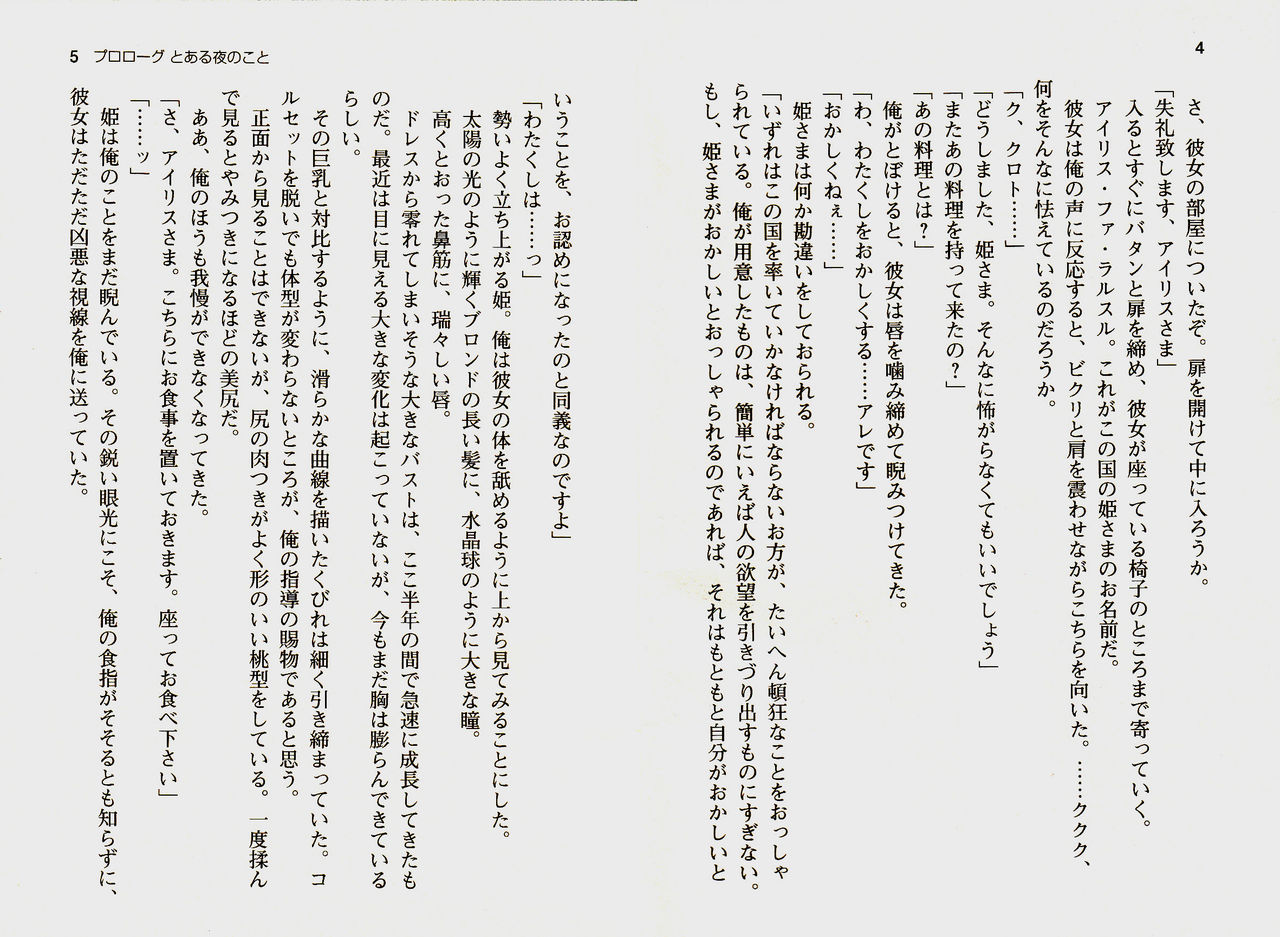 4
さ、彼女の部屋についたぞ。扉を開けて中に入ろうか。
「失礼致します、アイリスさま」
入るとすぐにバタンと扉を締め、彼女が座っている椅子のところまで寄っていく。
アイリス・ファ・ラルスル。これがこの国の姫さまのお名前だ。
彼女は俺の声に反応すると、ビクリと肩を震わせながらこちらを向いた。……ククク、
何をそんなに怯えているのだろうか。
「ク、クロト……」
「どうしました、姫さま。そんなに怖がらなくてもいいでしょう」
「またあの料理を持って来たの？」
「あの料理とは？」
俺がとぼけると、彼女は唇を噛み締めて睨みつけてきた。
「わ、わたくしをおかしくする……アレです」
「おかしくねぇ……」
姫さまは何か勘違いをしておられる。
「いずれはこの国を率いていかなければならないお方が、たいへん頓狂なことをおっしゃ
られている。俺が用意したものは、簡単にいえば人の欲望を引きづり出すものにすぎない。
もし、姫さまがおかしいとおっしゃられるのであれば、それはもともと自分がおかしいと
5 プロローグ とある夜のこと
いうことを、お認めになったのと同義なのですよ」
「わたくしは……っ」
勢いよく立ち上がる姫。俺は彼女の体を舐めるように上から見てみることにした。
太陽の光のように輝くブロンドの長い髪に、水晶球のように大きな瞳。
高くとおった鼻筋に、瑞々しい唇。
ドレスから零れてしまいそうな大きなバストは、ここ半年の間で急速に成長してきたも
のだ。最近は目に見える大きな変化は起こっていないが、今もまだ胸は膨らんできている
らしい。
その巨乳と対比するように、滑らかな曲線を描いたくびれは細く引き締まっていた。コ
ルセットを脱いでも体型が変わらないところが、俺の指導の賜物であると思う。
正面から見ることはできないが、尻の肉つきがよく形のいい桃型をしている。一度揉ん
で見るとやみつきになるほどの美尻だ。
ああ、俺のほうも我慢ができなくなってきた。
「さ、アイリスさま。こちらにお食事を置いておきます。座ってお食べ下さい」
「……ッ」
姫は俺のことをまだ睨んでいる。その鋭い眼光にこそ、俺の食指がそそるとも知らずに、
彼女はただただ凶悪な視線を俺に送っていた。